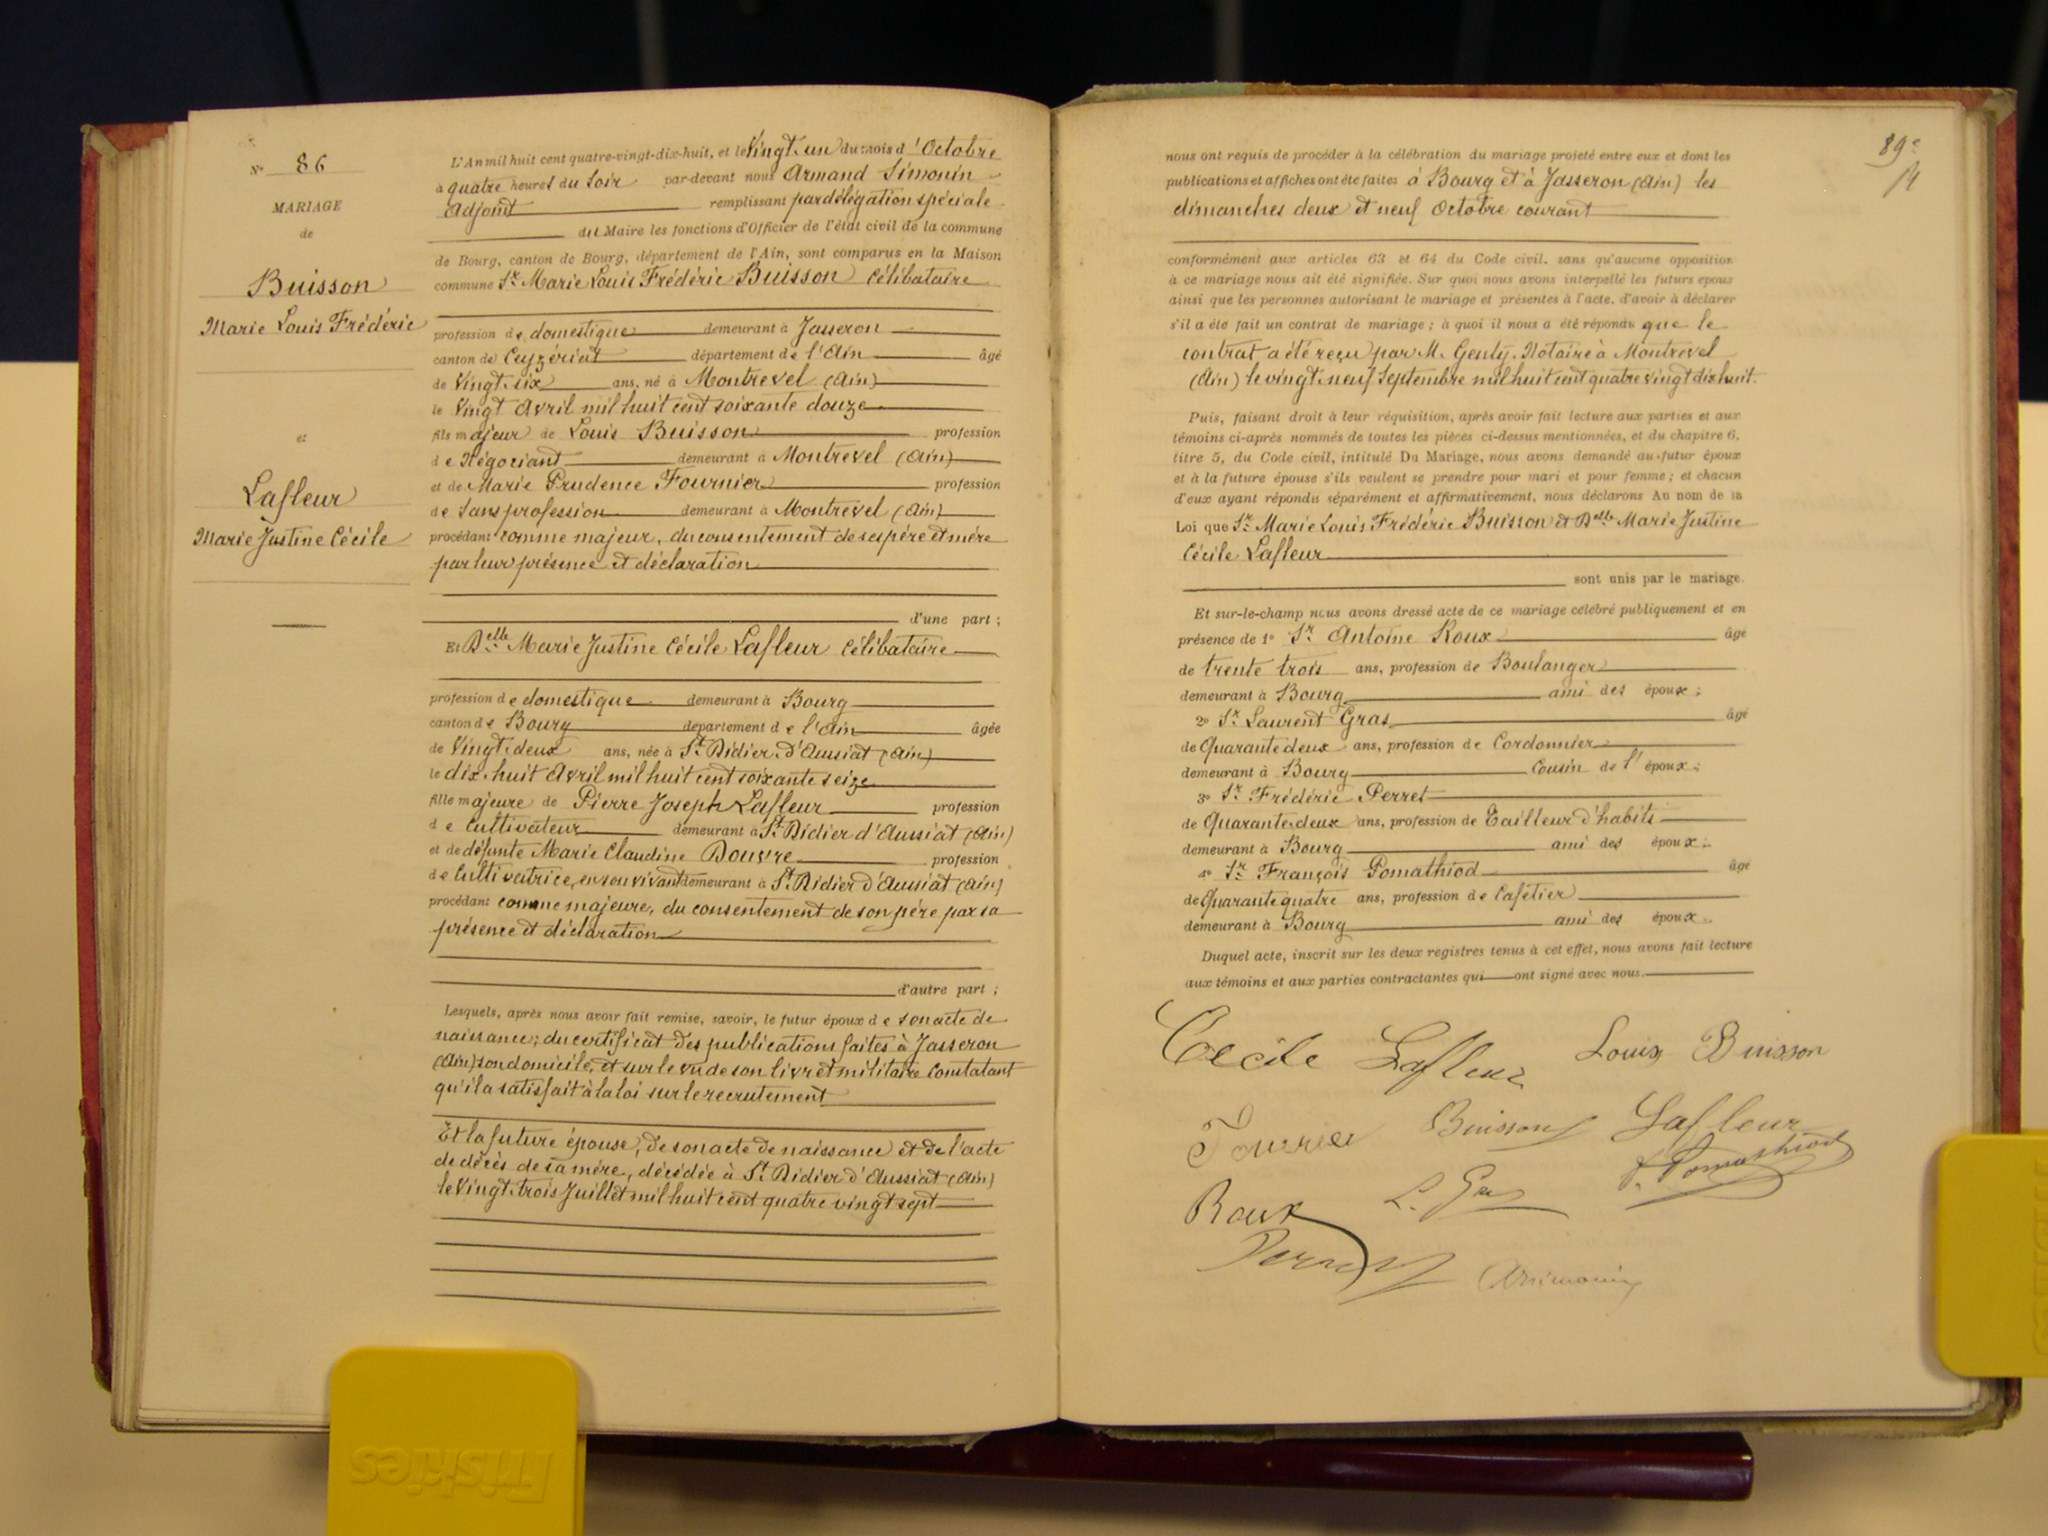 N° 86
MARIAGE
de
Buisson
Marie Louis Frédéric
et
Lafleur
Marie Justine Cécile
L'An mil huit cent quatre-vingt-dix-huit, et le Vingt-un du mois d'Octobre
à quatre heures du Soir par-devant nous Armand Simonin
Adjoint remplissant par délégation spéciale
du Maire les fonctions d'Officier de l'état civil de la commune
de Bourg, canton de Bourg, département de l'Ain, sont comparus en la Maison
commune Sr. Marie Louis Frédéric Buisson Célibataire
profession de domestique demeurant à Jasseron
canton de Ceyzériat département de l'Ain âgé
de Vingt-six ans, né à Montrevel (Ain)
le Vingt Avril mil huit cent soixante douze
fils majeur de Louis Buisson profession
de Négociant demeurant à Montrevel (Ain)
et de Marie Prudence Fournier profession
de Sans profession demeurant à Montrevel (Ain)
procédant comme majeur, du consentement de ses père et mère
par leur présence et déclaration
d'une part ;
Et Delle Marie Justine Cécile Lafleur Célibataire
profession de domestique demeurant à Bourg
canton de Bourg département de l'Ain âgée
de Vingt-deux ans, née à St. Didier-d'Aussiat (Ain)
le dix-huit Avril mil huit cent soixante seize
fille majeure de Pierre Joseph Lafleur profession
de Cultivateur demeurant à St. Didier d'Aussiat (Ain)
et de défunte Marie Claudine Douvre profession
de Cultivatrice, en son vivant demeurant à St. Didier d'Aussiat (Ain)
procédant comme majeure, du consentement de son père par sa
présence et déclaration
d'autre part ;
Lesquels, après nous avoir fait remise, savoir, le futur époux de son acte de
naissance; du certificat des publications faites à Jasseron
(Ain) son domicile, et sur le vu de son livret militaire constatant
qu'il a satisfait à la loi sur le recrutement
Et la future épouse, de son acte de naissance et de l'acte
de décès de sa mère, décédée à St. Didier d'Aussiat (Ain)
le Vingt-trois Juillet mil huit cent quatre vingt sept
89e
nous ont requis de procéder à la célébration du mariage projeté entre eux et dont les
publications et affiches ont été faites à Bourg et à Jasseron (Ain) les
dimanches deux et neuf Octobre courant
conformément aux articles 63 et 64 du Code civil, sans qu'aucune opposition
à ce mariage nous ait été signifiée. Sur quoi nous avons interpellé les futurs époux
ainsi que les personnes autorisant le mariage et présentes à l'acte, d'avoir à déclarer
s'il a été fait un contrat de mariage ; à quoi il nous a été répondu que le
contrat a été reçu par M. Genty, Notaire à Montrevel
(Ain) le vingt-neuf Septembre mil huit cent quatre vingt dix huit.
Puis, faisant droit à leur réquisition, après avoir fait lecture aux parties et aux
témoins ci-après nommés de toutes les pièces ci-dessus mentionnées, et du chapitre 6,
titre 5, du Code civil, intitulé Du Mariage, nous avons demandé au futur époux
et à la future épouse s'ils veulent se prendre pour mari et pour femme ; et chacun
d'eux ayant répondu séparément et affirmativement, nous déclarons Au nom de la
Loi que Sr. Marie Louis Frédéric Buisson et Delle Marie Justine
Cécile Lafleur
sont unis par le mariage.
Et sur-le-champ nous avons dressé acte de ce mariage célébré publiquement et en
présence de 1° Sr. Antoine Roux âgé
de trente trois ans, profession de Boulanger
demeurant à Bourg ami des époux ;
2° Sr. Laurent Gras âgé
de Quarante deux ans, profession de Cordonnier
demeurant à Bourg Cousin de l'époux ;
3° Sr. Frédéric Perret
de Quarante-deux ans, profession de Tailleur d'habits
demeurant à Bourg ami des époux ;
4° Sr. François Pomathiod âgé
de Quarante quatre ans, profession de Cafetier
demeurant à Bourg ami des époux.
Duquel acte, inscrit sur les deux registres tenus à cet effet, nous avons fait lecture
aux témoins et aux parties contractantes qui ont signé avec nous.
Cécile Lafleur Louis Buisson
Buisson Lafleur
F. Pomathiod
Roux L. Gras
Perret
ASimonin
Friskies